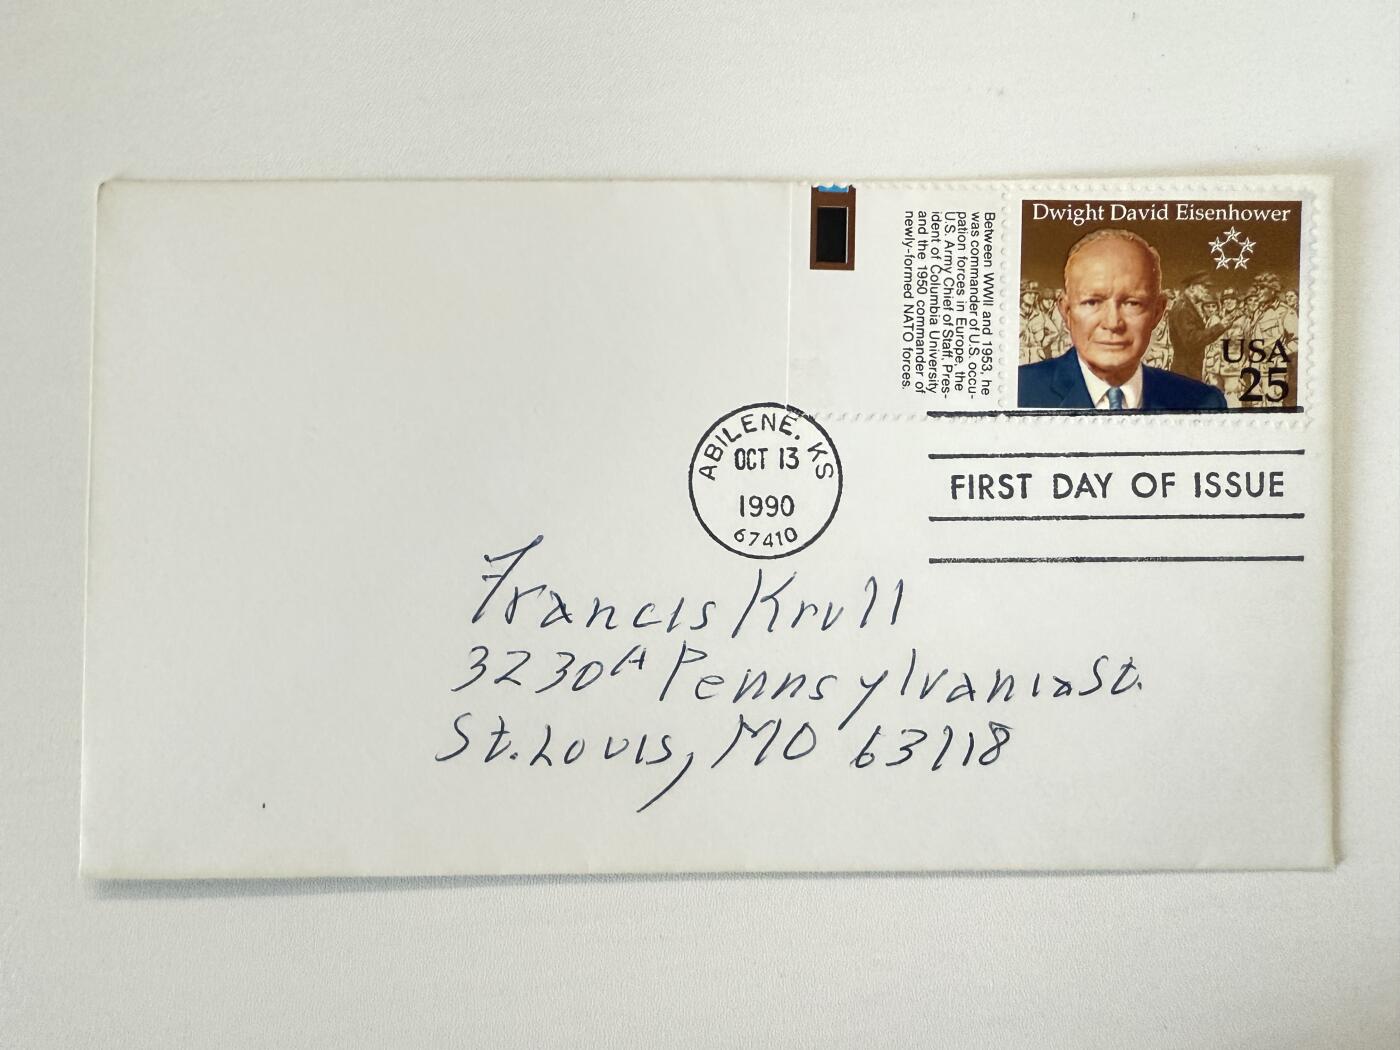 Between WWII and 1953, he
was commander of U.S. occu-
pation forces in Europe, the
U.S. Army Chief of Staff, Pres-
ident of Columbia University
and the 1950 commander of
newly-formed NATO forces.
Dwight David Eisenhower
USA
25
ABILENE, KS
OCT 13
1990
67410
FIRST DAY OF ISSUE
Francis Krull
3230A Pennsylvania St.
St. Louis, MO 63118